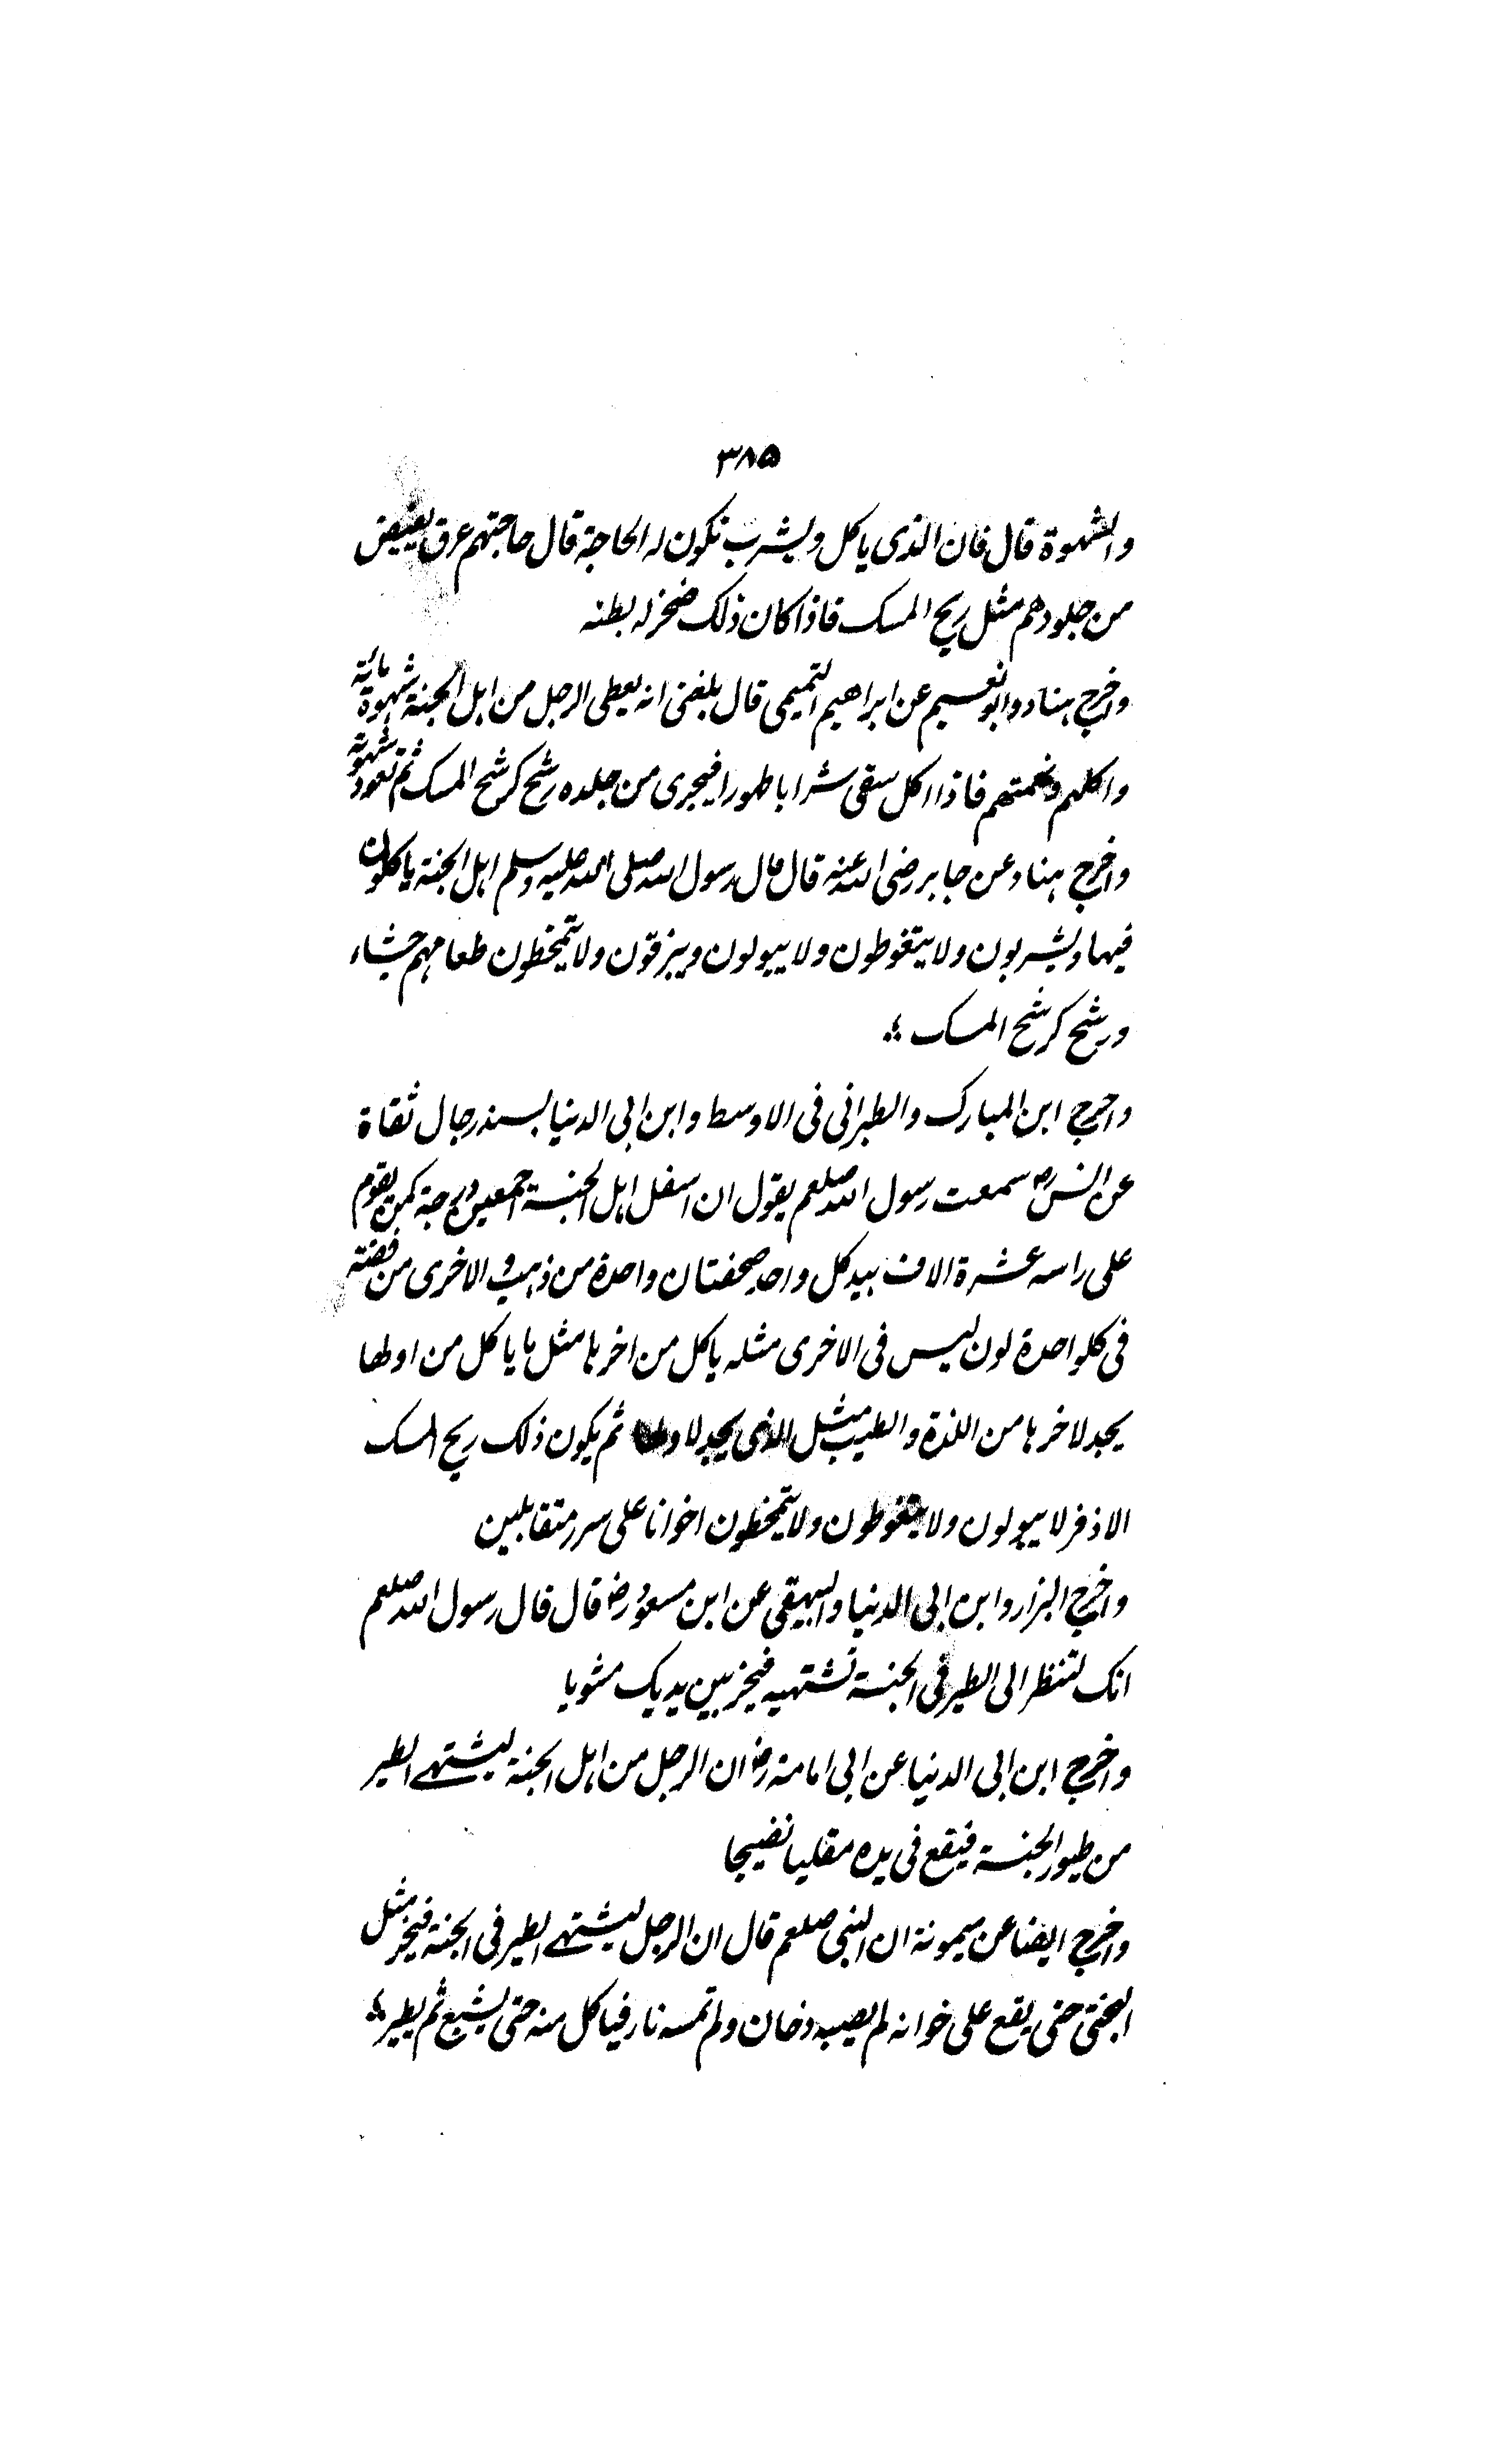 ۳۸۵
والشهوة قال فان الذى ياكل ويشرب تكون له الحاجة قال حاجتهم عرق يفيض
من جلودهم مثل ريح المسك فاذا كان ذلك ضخزله بطنه
واخرج هناد وابو نعيم عن ابراهيم التميمى قال بلغنى انه يعطى الرجل من اهل الجنة شهوة مائة
واكلهم ونهمتهم فاذا اكل سقى شرابا طهورا فيجرى من جلده رشح كرشح المسك ثم تعود شهوته
واخرج هناد عن جابر رضى الله عنه قال قال رسول الله صلى الله عليه وسلم اهل الجنة ياكلون
فيها ويشربون ولا يتغوطون ولا يبولون ويبزقون ولا يتمخطون طعامهم جشاء
ورشح كرشح المسك ؞
واخرج ابن المبارك والطبرانى فى الاوسط وابن ابى الدنيا بسند رجال ثقاة
عن انسؓ سمعت رسول الله صلعم يقول ان اسفل اهل الجنة اجمعين درجة كمن يقوم
على راسه عشرة الاف بيد كل واحد صحفتان واحدة من ذهب والاخرى من فضة
فى كلواحدة لون ليس فى الاخرى مثله ياكل من اخرها مثل ما ياكل من اولها
يجد لاخرها من اللذة والطيب مثل الذى يجد لاولها ثم يكون ذلك ريح المسك
الاذفر لا يبولون ولا يتغوطون ولا يتمخطون اخوانا على سرر متقابلين
واخرج البزار وابن ابى الدنيا والبيهقى عن ابن مسعود رض قال قال رسول الله صلعم
انك لتنظر الى الطير فى الجنة تشتهيه فيخز بين يديك مشويا
واخرج ابن ابى الدنيا عن ابى امامة رض ان الرجل من اهل الجنة ليشتهے الطير
من طيور الجنة فيقع فى يده مقليا نضيجا
واخرج ايضا عن ميمونة ان النبى صلعم قال ان الرجل ليشتهے الطير فى الجنة فيخر مثل
البختى حتى يقع على خوانه لم يصبه دخان ولم تمسه نار فياكل منه حتى يشبع ثم يطير ؞